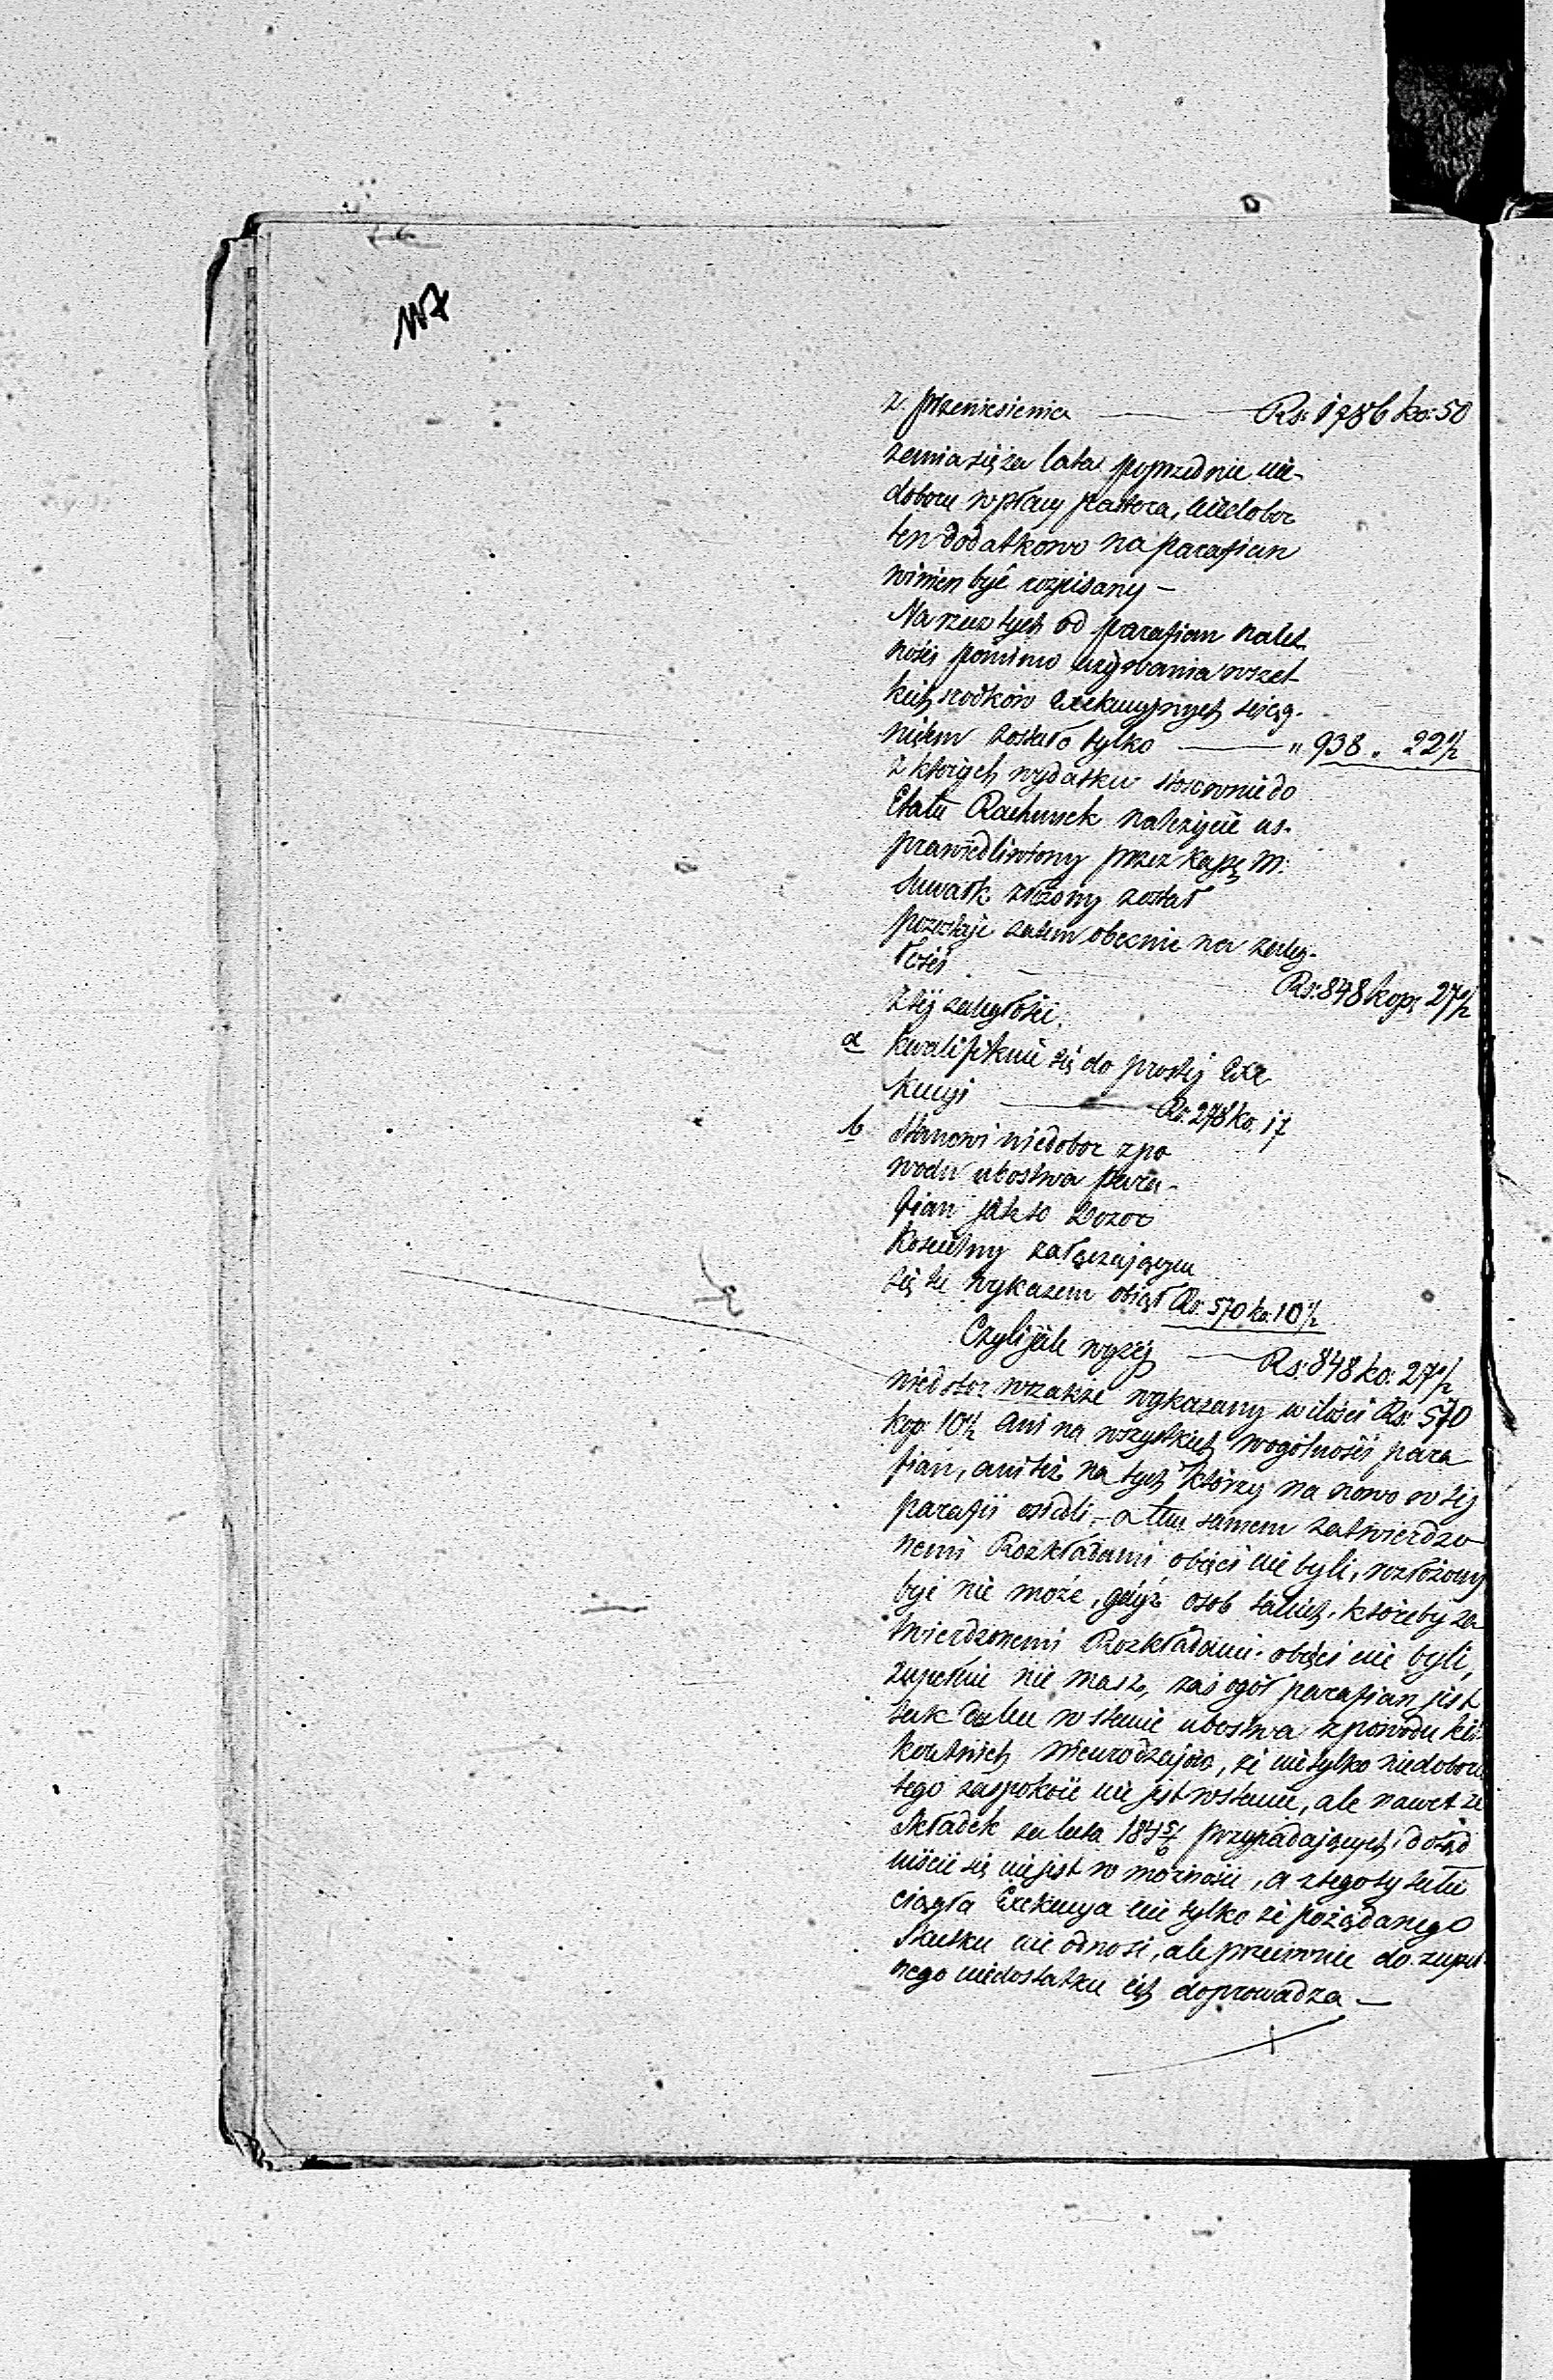 z przeniesienia — Rs: 1786 ko: 50
zenia się za lata poprzednie nie-
doboru w płacy pastora, niedobor
ten dodatkowo na parafian
winien być rozpisany —
Na rzecz tych od parafian należ
ności pomimo używania wszel
kich srodków Exekucyjnych ściąg-
niętem zostało tylko — „ 938 „ 22½
z których wydatku stosownie do
Etatu Rachunek należycie us-
prawiedliwiony przez kassę m:
Suwałk złożony został
pozostaje zatem obecnie na zaleg-
łości — Rs: 848 kop: 27½
z tej zaległości:
a kwalifikuie się do prostej Exe
kucyi — Rs: 278 ko. 17
b stanowi niedobor z po
wodu ubostwa para-
fian jak to Dozor
Koscielny załączającym
się tu wykazem objął Rs: 570 ko: 10½
Czyli jak wyżej — Rs: 848 ko: 27½
niedobor wszakże wykazany w ilości Rs: 570
kop: 10½ ani na wszystkich wogólności para
fian, ani też na tych którzy na nowo w tej
parafii osiedli, a tem samem zatwierdzo
nemi Rozkładami objęci nie byli, rozłożony
być nie może, gdyż osob takich, któreby za
twierdzonemi Rozkładami objęci nie byli,
zupełnie nie masz, zaś ogół parafian jest
tak dalece w stanie ubostwa z powodu kil-
koletnich nieurodzajów, że nie tylko niedoboru
tego zaspokoić nie jest w stanie, ale nawet ze
składek za lata 1845/6 przypadających dotąd
uiścić się nie jest w możności, a z tego tytułu
ciągła Exekucya nie tylko że pożądanego
skutku nie odnosi, ale przeciwnie do zupeł-
nego niedostatku ich doprowadza —